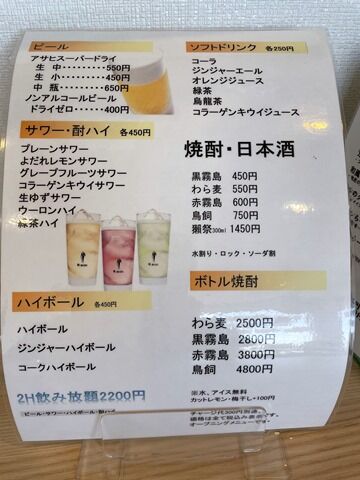 ビール
アサヒスーパードライ
生 中・・・・・・・・550円
生 小・・・・・・・・450円
中 瓶・・・・・・・・650円
ノンアルコールビール
ドライゼロ・・・・400円
サワー・酎ハイ 各450円
プレーンサワー
よだれレモンサワー
グレープフルーツサワー
コラーゲンキウイサワー
生ゆずサワー
ウーロンハイ
緑茶ハイ
ハイボール 各450円
ハイボール
ジンジャーハイボール
コークハイボール
2H飲み放題2200円
ビール・サワー・ハイボール・酎ハイ
ソフトドリンク 各250円
コーラ
ジンジャーエール
オレンジジュース
緑茶
烏龍茶
コラーゲンキウイジュース
焼酎・日本酒
黒霧島 450円
わら麦 550円
赤霧島 600円
鳥飼 750円
獺祭300ml 1450円
水割り・ロック・ソーダ割
ボトル焼酎
わら麦 2500円
黒霧島 2800円
赤霧島 3800円
鳥飼 4800円
※水、アイス無料
カットレモン・梅干し+100円
チャージ代300円別途。
価格は全て税込み表示です。
オープニングメニューです。